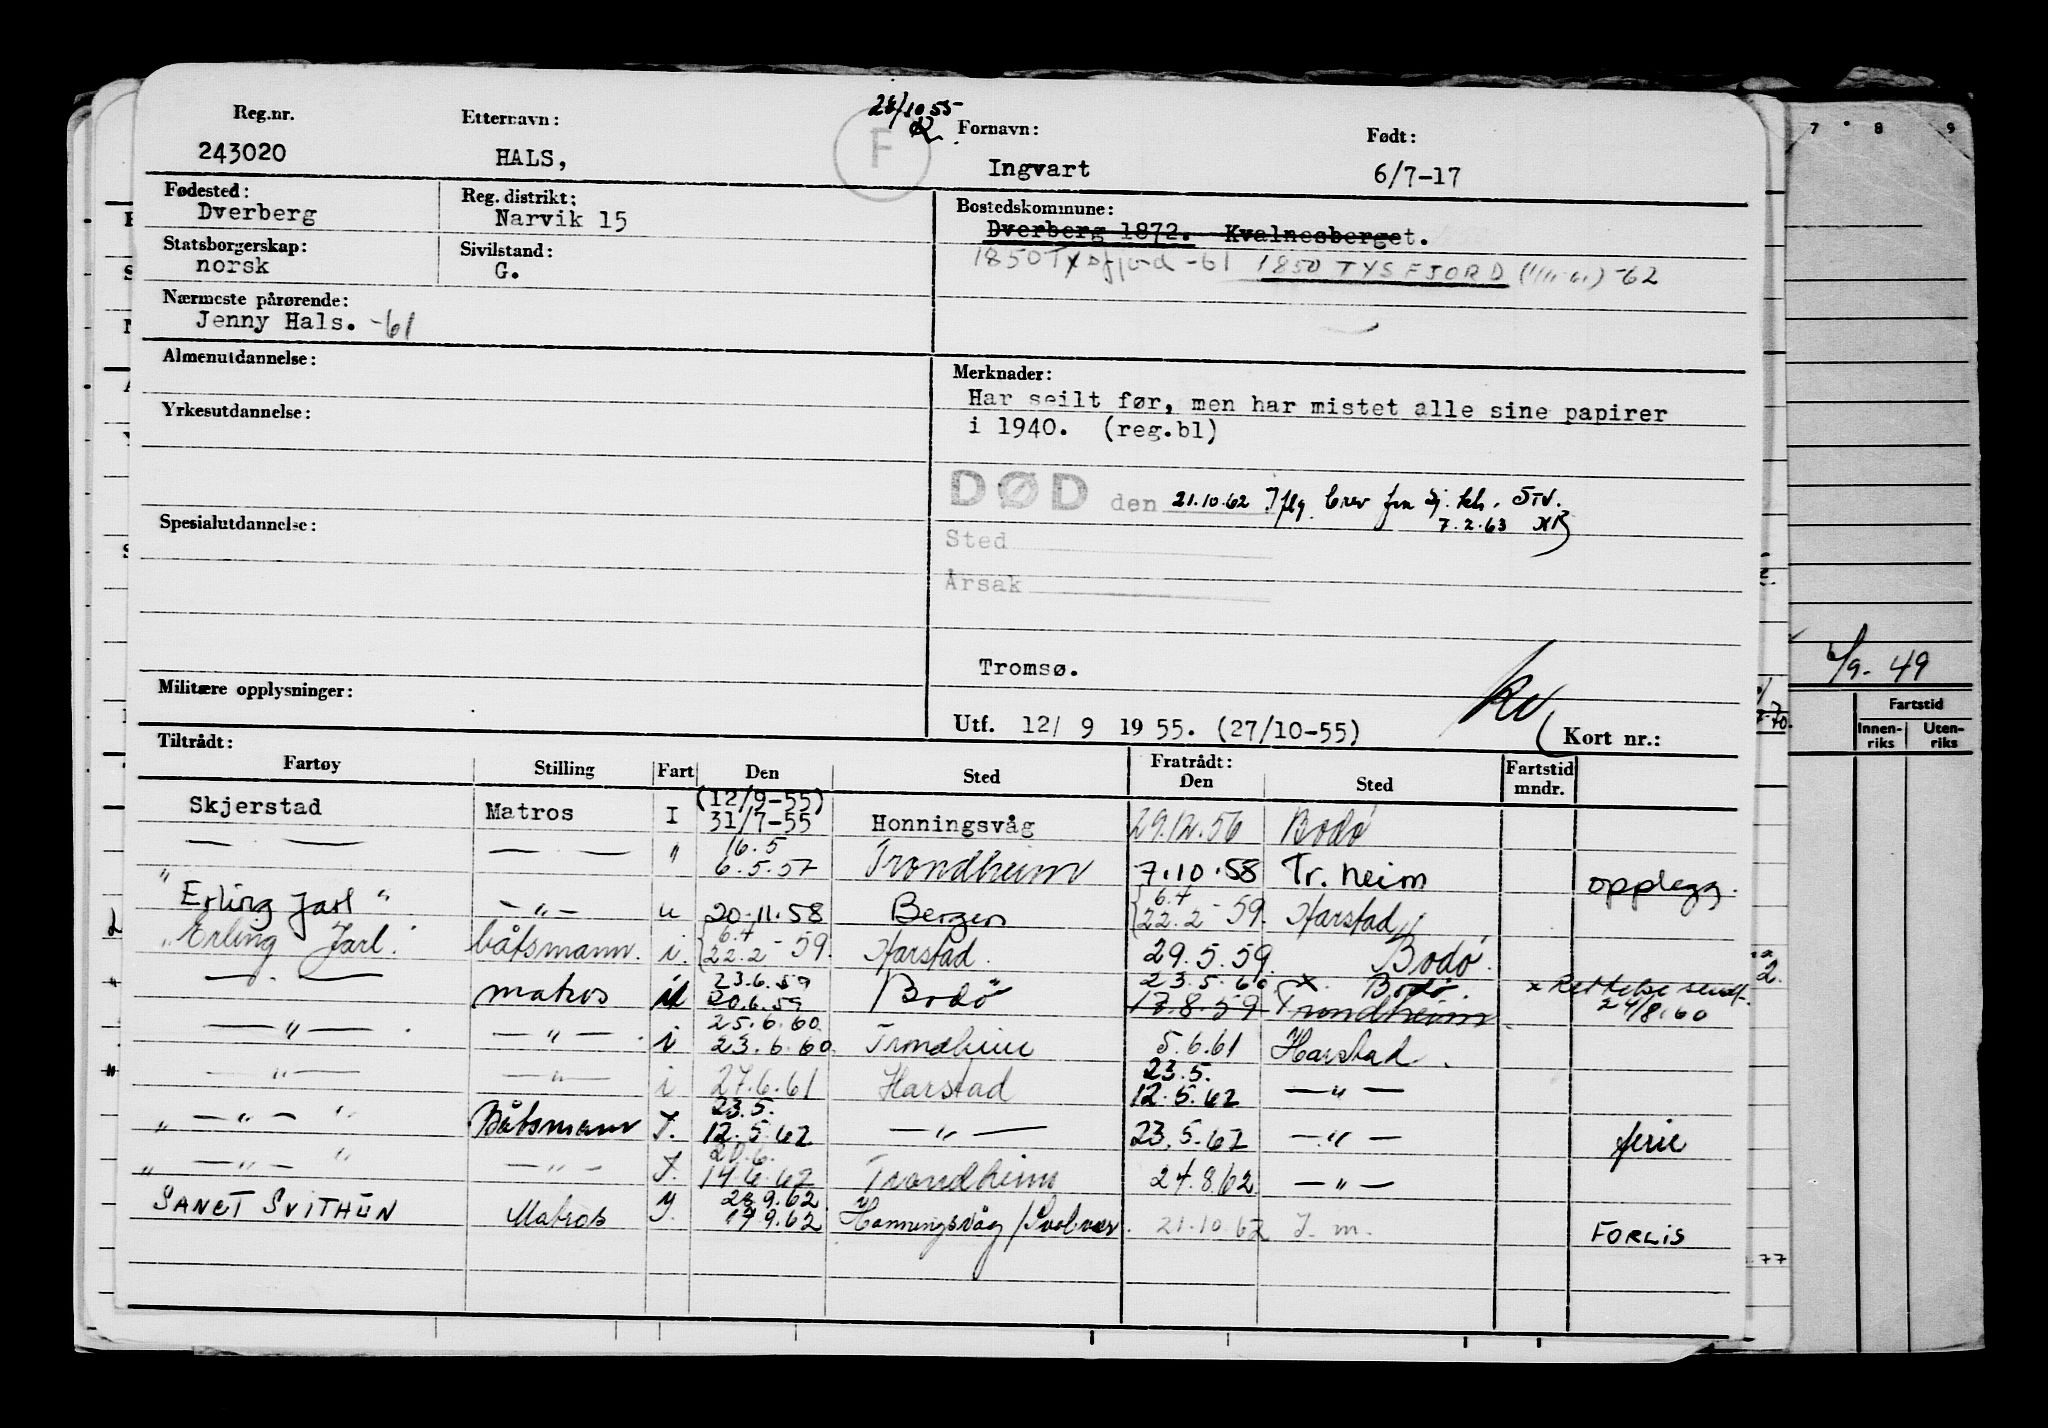 Reg.nr. Etternavn: 28/10 55 Fornavn: Født:
243020 HALS, F Ingvart 6/7-17
Fødested: Reg. distrikt: Bostedskommune:
Dverberg Narvik 15 Dverberg 1872. Kvalnesberget.
Statsborgerskap: Sivilstand:
norsk G. 1850 Tysfjord -61 1850 TYSFJORD -62
Nærmeste pårørende:
Jenny Hals. -61
Almenutdannelse: Merknader:
Har seilt før, men har mistet alle sine papirer
Yrkesutdannelse: i 1940. (reg.bl)
DØD den 21.10.62 Iflg brev fra Sj. kh. STV.
Spesialutdannelse: 7.2.63
Sted
Årsak
Tromsø.
Militære opplysninger:
Utf. 12/ 9 19 55. (27/10-55) Kort nr.:
Tiltrådt: Fratrådt:
Fartøy Stilling Fart Den Sted Den Sted Fartstid mndr.
(12/9-55)
Skjerstad Matros I 31/7-55 Honningsvåg 29.12.56 Bodø
16.5
— — — — " 6.5.57 Trondheim 7.10.58 Tr.heim opplegg.
6.4
"Erling Jarl" — " — " 20.11.58 Bergen 22.2 - 59. Harstad
6.4
"Erling Jarl." båtsmann. i. 22.2 - 59. Harstad. 29.5.59. Bodø.
23.6.59 23.5.60 x. Bodø. x Rettelse sendt
— " — matros i 20.6.59 Bodø 17.8.59 Trondheim 24/8.60
25.6.60
— " — — " — i 23.6.60. Trondheim 5.6.61 Harstad.
23.5.
— " — — " — i 27.6.61 Harstad 12.5.62 — " —
23.5.
" — " — " Båtsmann I. 12.5.62 — " — 23.5.62 — " — ferie
20.6.
" — " — " — " — I. 14.6.62 Trondheim 24.8.62 — " —
28.9.62
SANCT SVITHUN Matros I. 17.9.62 Honningsvåg/Svolvær. 21.10.62 I. m. FORLIS
7 8 9
6/9. 49
Fartstid
Innenriks Utenriks